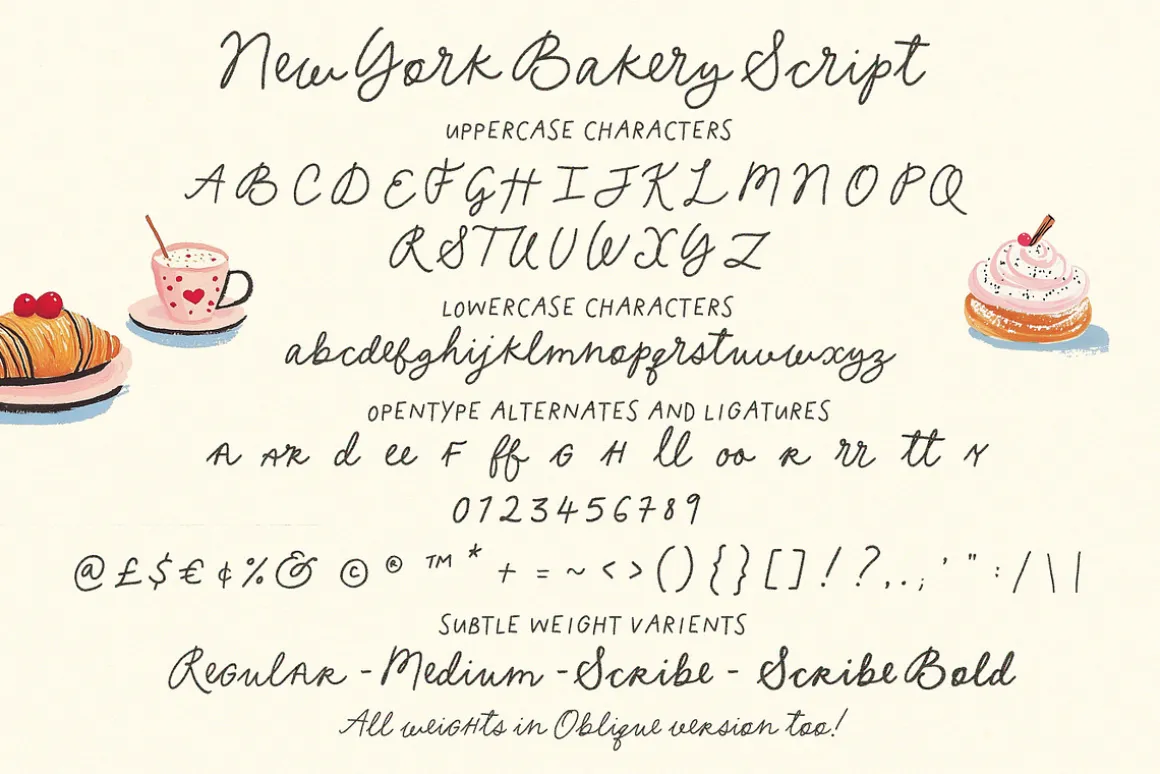 New York Bakery Script
UPPERCASE CHARACTERS
A B C D E F G H I J K L M N O P Q
R S T U V W X Y Z
LOWERCASE CHARACTERS
abcdefghijklmnopqrstuvwxyz
OPENTYPE ALTERNATES AND LIGATURES
A AR d ee F ff G H ll oo R rr tt Y
0 1 2 3 4 5 6 7 8 9
@ £ $ € ¢ % & © ® ™ * + = ~ < > ( ) { } [ ] ! ? , . ; ' " : / \ |
SUBTLE WEIGHT VARIENTS
Regular - Medium - Scribe - Scribe Bold
All weights in Oblique version too!